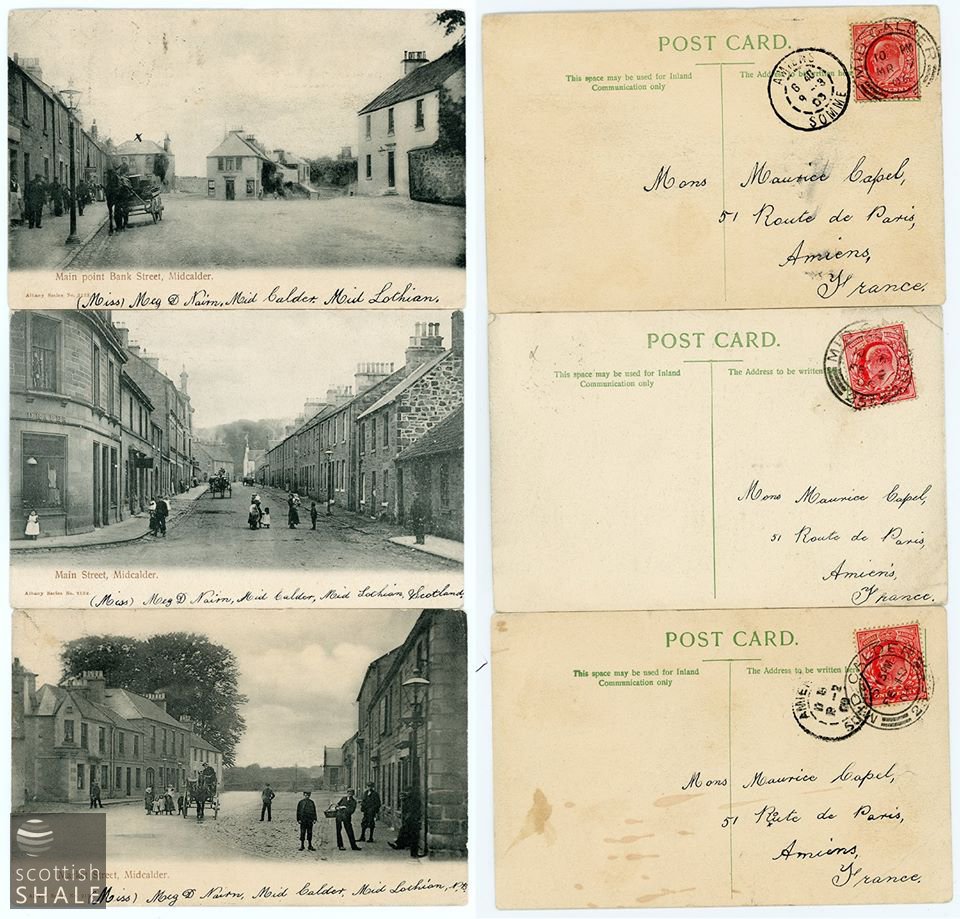 Main point Bank Street, Midcalder.
Albany Series No.
(Miss) Meg D Nairn, Mid Calder, Mid Lothian.
Main Street, Midcalder.
Albany Series No. 2122
(Miss) Meg D Nairn, Mid Calder, Mid Lothian, Scotland
Street, Midcalder.
(Miss) Meg D Nairn, Mid Calder, Mid Lothian, N.B.
scottish
SHALE
POST CARD.
This space may be used for Inland
Communication only
The Address to be written here
AMIENS
SOMME
MID CALDER
Mons Maurice Capel,
51 Route de Paris,
Amiens,
France.
POST CARD.
This space may be used for Inland
Communication only
The Address to be written
MID CALDER
Mons Maurice Capel,
51 Route de Paris,
Amiens,
France.
POST CARD.
This space may be used for Inland
Communication only
The Address to be written here
MID CALDER
Mons Maurice Capel,
51 Rte de Paris,
Amiens,
France.